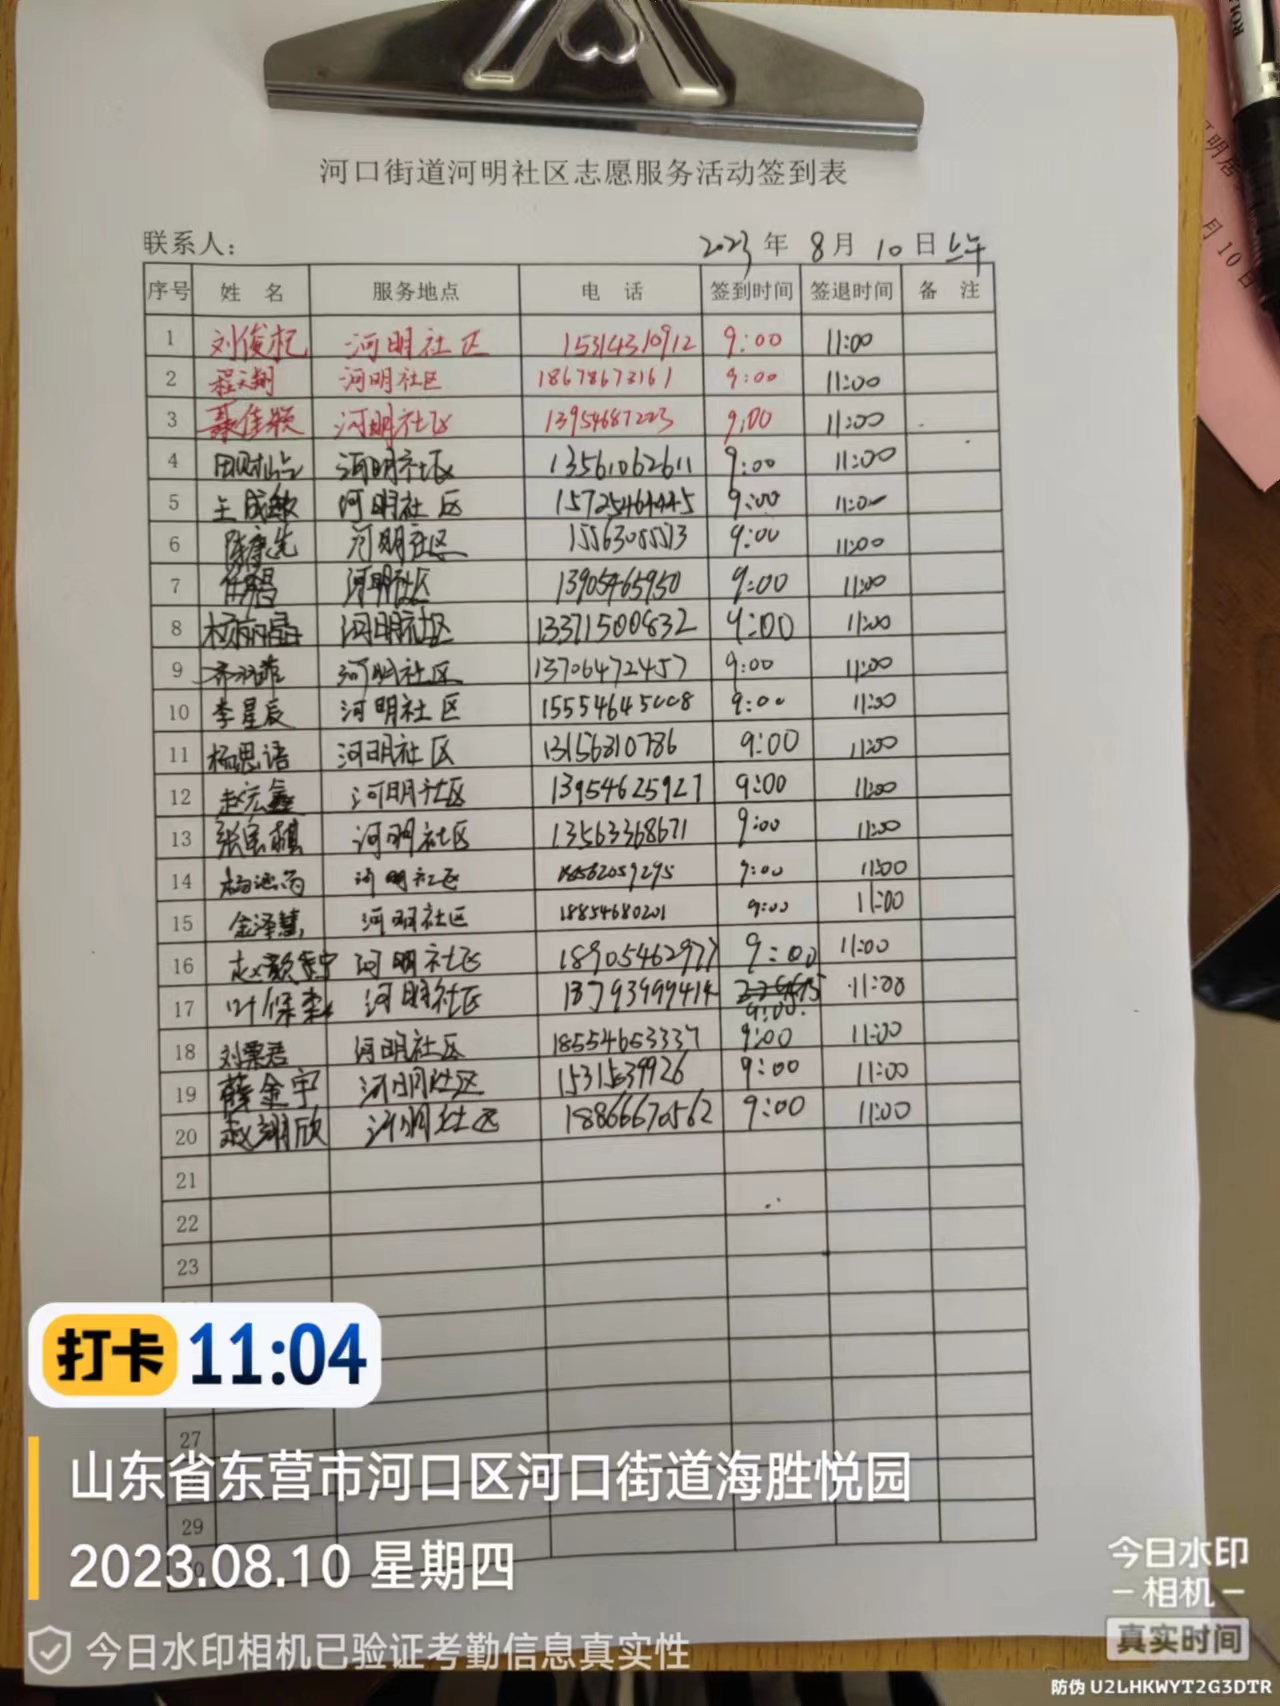 河口街道河明社区志愿服务活动签到表
联系人： 2023年 8月 10日上午
序号 姓 名 服务地点 电 话 签到时间 签退时间 备 注
1 河明社区 15314310912 9:00 11:00
2 程天翔 河明社区 18678673161 9:00 11:00
3 聂佳颖 河明社区 13954687223 9:00 11:00
4 河明社区 13561062611 9:00 11:00
5 王成敏 河明社区 15725464445 9:00 11:00
6 陈康先 河明社区 9:00 11:00
7 河明社区 13905465950 9:00 11:00
8 杨丽晶 河明社区 13371500832 9:00 11:00
9 河明社区 13706472457 9:00 11:00
10 李星辰 河明社区 15554645008 9:00 11:00
11 杨思语 河明社区 13156810786 9:00 11:00
12 赵宏鑫 河明社区 13954625927 9:00 11:00
13 河明社区 13563368671 9:00 11:00
14 河明社区 18562059295 9:00 11:00
15 金泽慧 河明社区 18854680201 9:00 11:00
16 河明社区 18905462977 9:00 11:00
17 叶保森 河明社区 13793999414 9:00 11:00
18 刘栗君 河明社区 18554653337 9:00 11:00
19 薛金宇 河明社区 15315639926 9:00 11:00
20 赵翊欣 河明社区 18866670562 9:00 11:00
21
22
23
打卡 11:04
27
山东省东营市河口区河口街道海胜悦园
29
2023.08.10 星期四
今日水印
相机
真实时间
今日水印相机已验证考勤信息真实性
防伪 U2LHKWYT2G3DTR